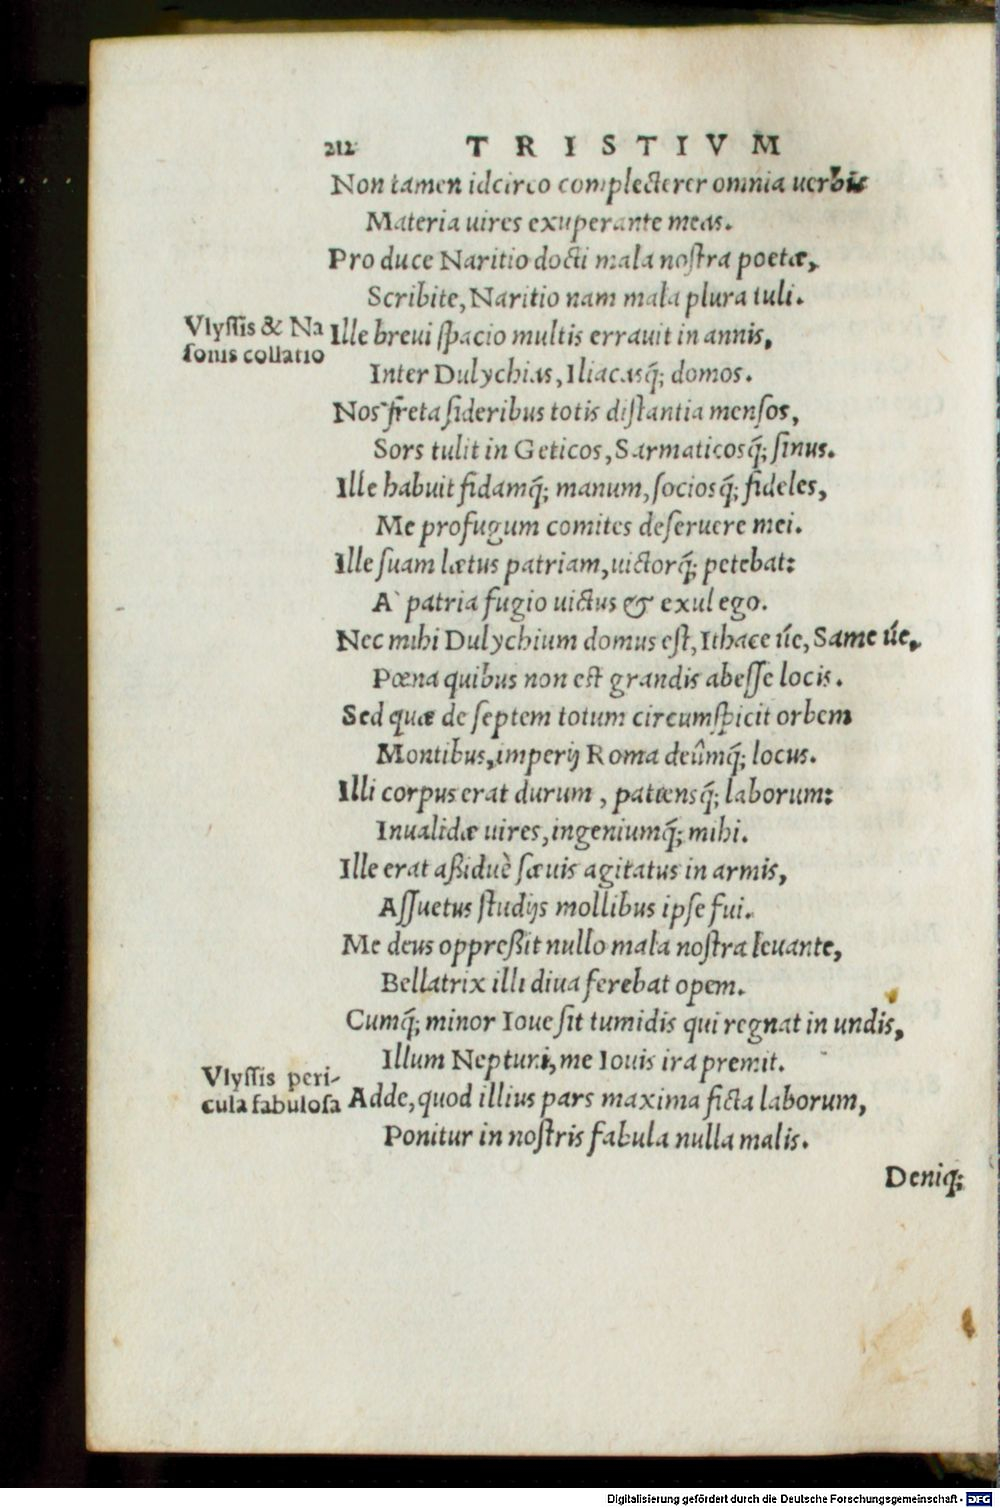 212 TRISTIVM
Non tamen idcirco complecterer omnia uerbis
Materia uires exuperante meas.
Pro duce Naritio docti mala noſtra poetæ,
Scribite, Naritio nam mala plura tuli.
Vlyſſis & Na
ſonis collatio
Ille breui ſpacio multis errauit in annis,
Inter Dulychias, Iliacasq́; domos.
Nos freta ſideribus totis diſtantia menſos,
Sors tulit in Geticos, Sarmaticosq́; ſinus.
Ille habuit fidamq́; manum, ſociosq́; fideles,
Me profugum comites deſeruere mei.
Ille ſuam lætus patriam, uictorq́; petebat:
A` patria fugio uictus & exul ego.
Nec mihi Dulychium domus eſt, Ithace úe, Same úe,
Pœna quibus non eſt grandis abeſſe locis.
Sed quæ de ſeptem totum circumſpicit orbem
Montibus, imperij Roma deûmq́; locus.
Illi corpus erat durum, patiensq́; laborum:
Inualidæ uires, ingeniumq́; mihi.
Ille erat aßiduè ſæuis agitatus in armis,
Aſſuetus ſtudijs mollibus ipſe fui.
Me deus oppreßit nullo mala noſtra leuante,
Bellatrix illi diua ferebat opem.
Cumq́; minor Ioue ſit tumidis qui regnat in undis,
Illum Neptuni, me Iouis ira premit.
Vlyſſis peri-
cula fabuloſa
Adde, quod illius pars maxima ficta laborum,
Ponitur in noſtris fabula nulla malis.
Deniq;
Digitalisierung gefördert durch die Deutsche Forschungsgemeinschaft - DFG